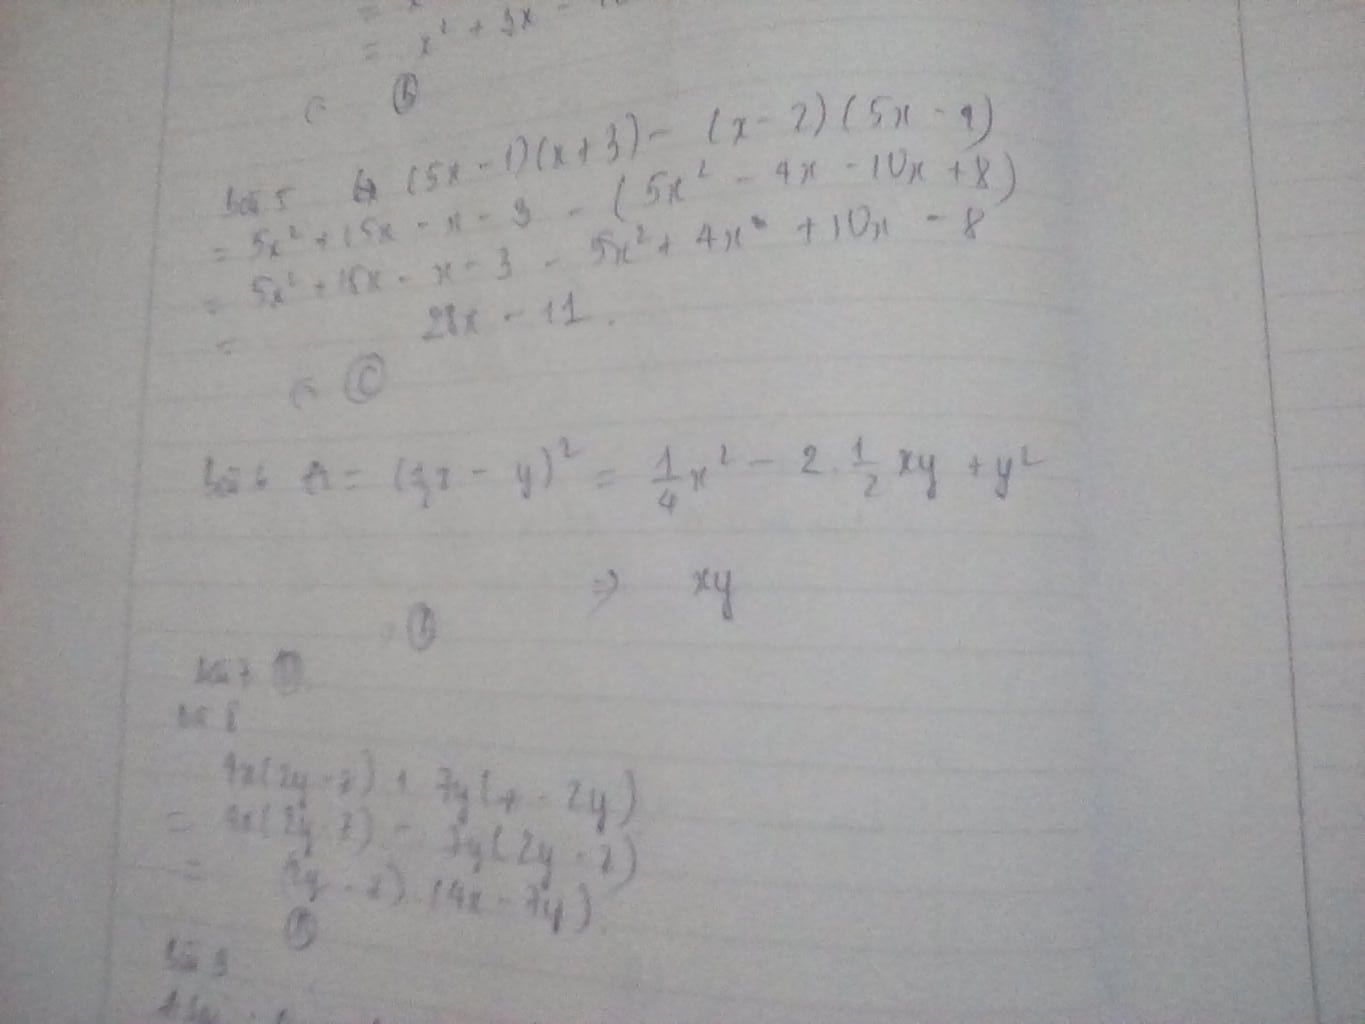 = x² + 3x -
b
Bài 5 (5x - 1)(x + 3) - (x - 2)(5x - 4)
= 5x² + 15x - x - 3 - (5x² - 4x - 10x + 8)
= 5x² + 15x - x - 3 - 5x² + 4x + 10x - 8
= 28x - 11.
C
Bài 6 A = (½x - y)² = ¼x² - 2.½xy + y²
⇒ xy
b
Bài 7
Bài 8
4x(2y - z) + 7y(z - 2y)
= 4x(2y - z) - 7y(2y - z)
= (2y - z).(4x - 7y)
Bài 9